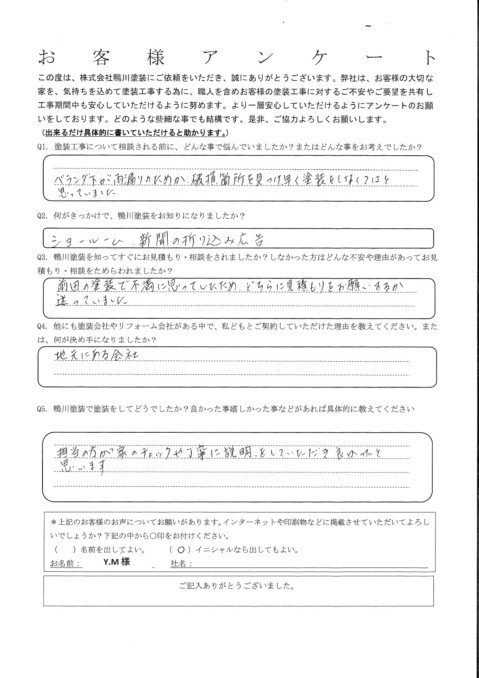 お客様アンケート
この度は、株式会社鴨川塗装にご依頼をいただき、誠にありがとうございます。弊社は、お客様の大切な
家を、気持ちを込めて塗装工事する為に、職人を含めお客様の塗装工事に対するご不安やご要望を共有し
工事期間中も安心していただけるように努めます。より一層安心していただけるようにアンケートのお願
いをしております。どのような些細な事でも結構です。是非、ご協力よろしくお願いします。
（出来るだけ具体的に書いていただけると助かります。）
Q1. 塗装工事について相談される前に、どんな事で悩んでいましたか？またはどんな事をお考えでしたか？
ベランダ下から雨漏りのためか、破損箇所を見つけ早く塗装をしなくてはと
思っていました
Q2. 何がきっかけで、鴨川塗装をお知りになりましたか？
ショールーム、新聞の折り込み広告
Q3. 鴨川塗装を知ってすぐにお見積もり・相談をされましたか？しなかった方はどんな不安や理由があってお見
積もり・相談をためらわれましたか？
前回の塗装で不満に思っていたため、どちらに見積もりをお願いするか
迷っていました
Q4. 他にも塗装会社やリフォーム会社がある中で、私どもとご契約していただけた理由を教えてください。また
は、何が決め手になりましたか？
地元にある会社
Q5. 鴨川塗装で塗装をしてどうでしたか？良かった事嬉しかった事などがあれば具体的に教えてください
担当の方が家のチェックや丁寧に説明をしていただき良かったと
思います
＊上記のお客様のお声についてお願いがあります。インターネットや印刷物などに掲載させていただいてよろし
いでしょうか？下記の中から〇印をお付けください。
（　）名前を出してよい。　（〇）イニシャルなら出してもよい。
お名前：　Y.M 様　．　社名：
ご記入ありがとうございました。